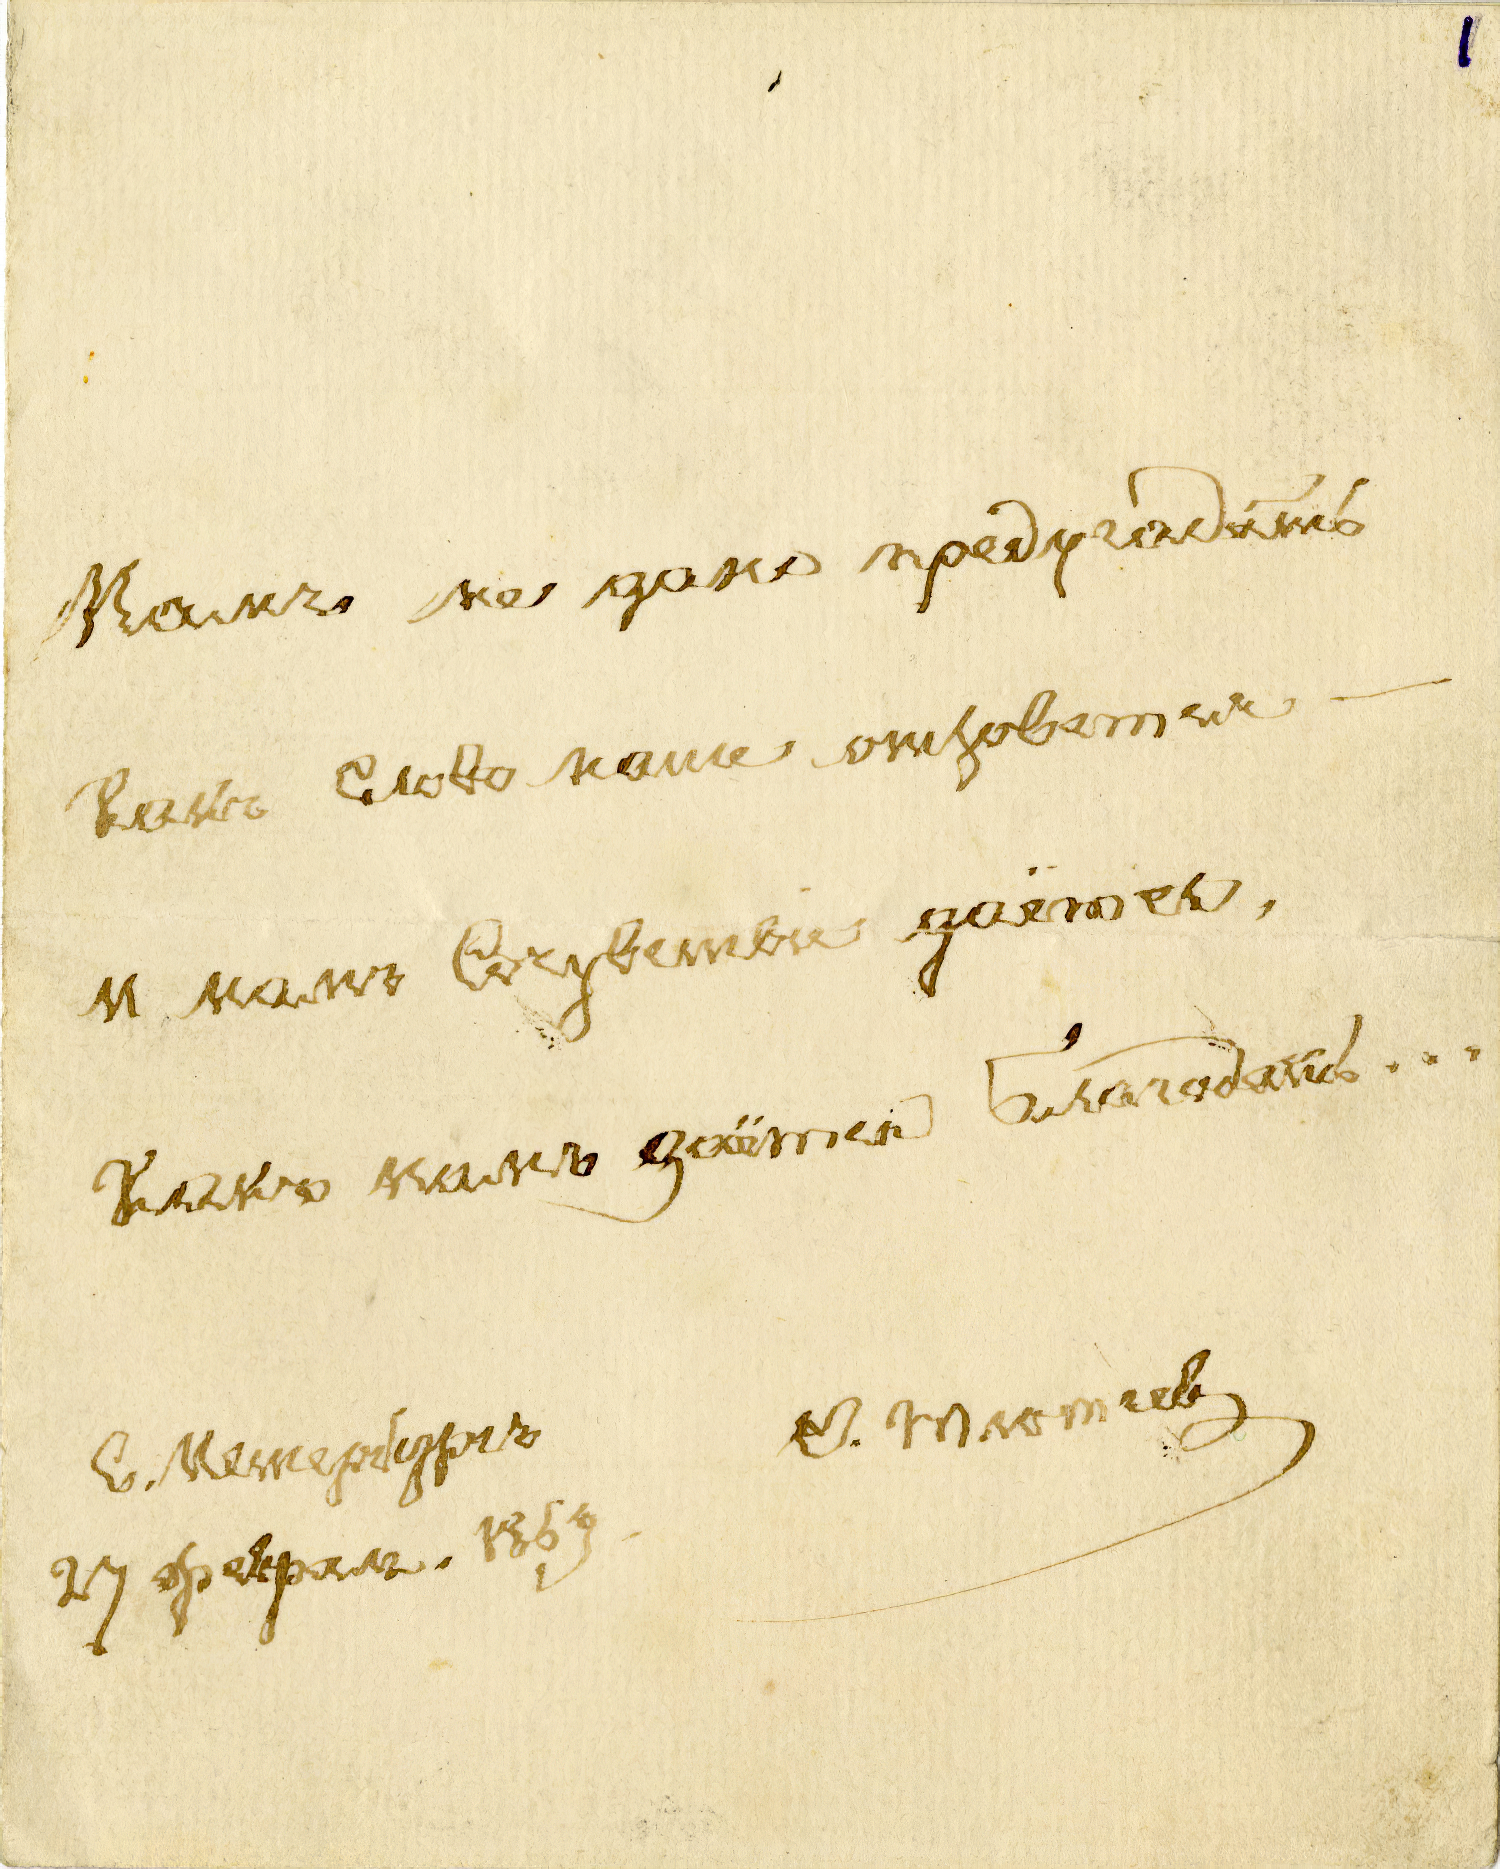 1
Намъ не дано предугадать
Какъ Слово наше отзовется —
И намъ Сочувствие даётся,
Какъ намъ даётся Благодать...
Ф. Тютчев
С. Петербургъ
27 Феврал. 1869